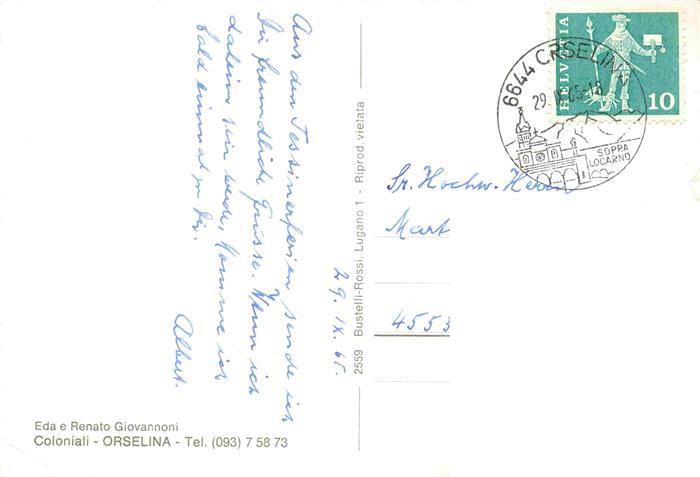 Aus den Tessinerferien sende ich
Dir freundliche Grüsse. Wenn ich
daheim sein werde, komme ich
bald einmal zu Dir.
Albert.
29. IX. 65.
Eda e Renato Giovannoni
Coloniali - ORSELINA - Tel. (093) 7 58 73
2559 Bustelli-Rossi, Lugano 1 - Riprod. vietata
HELVETIA
10
6644 ORSELINA
29. IX. 65-18
SOPRA
LOCARNO
Sr. Hochw. Herrn
Mart
4553